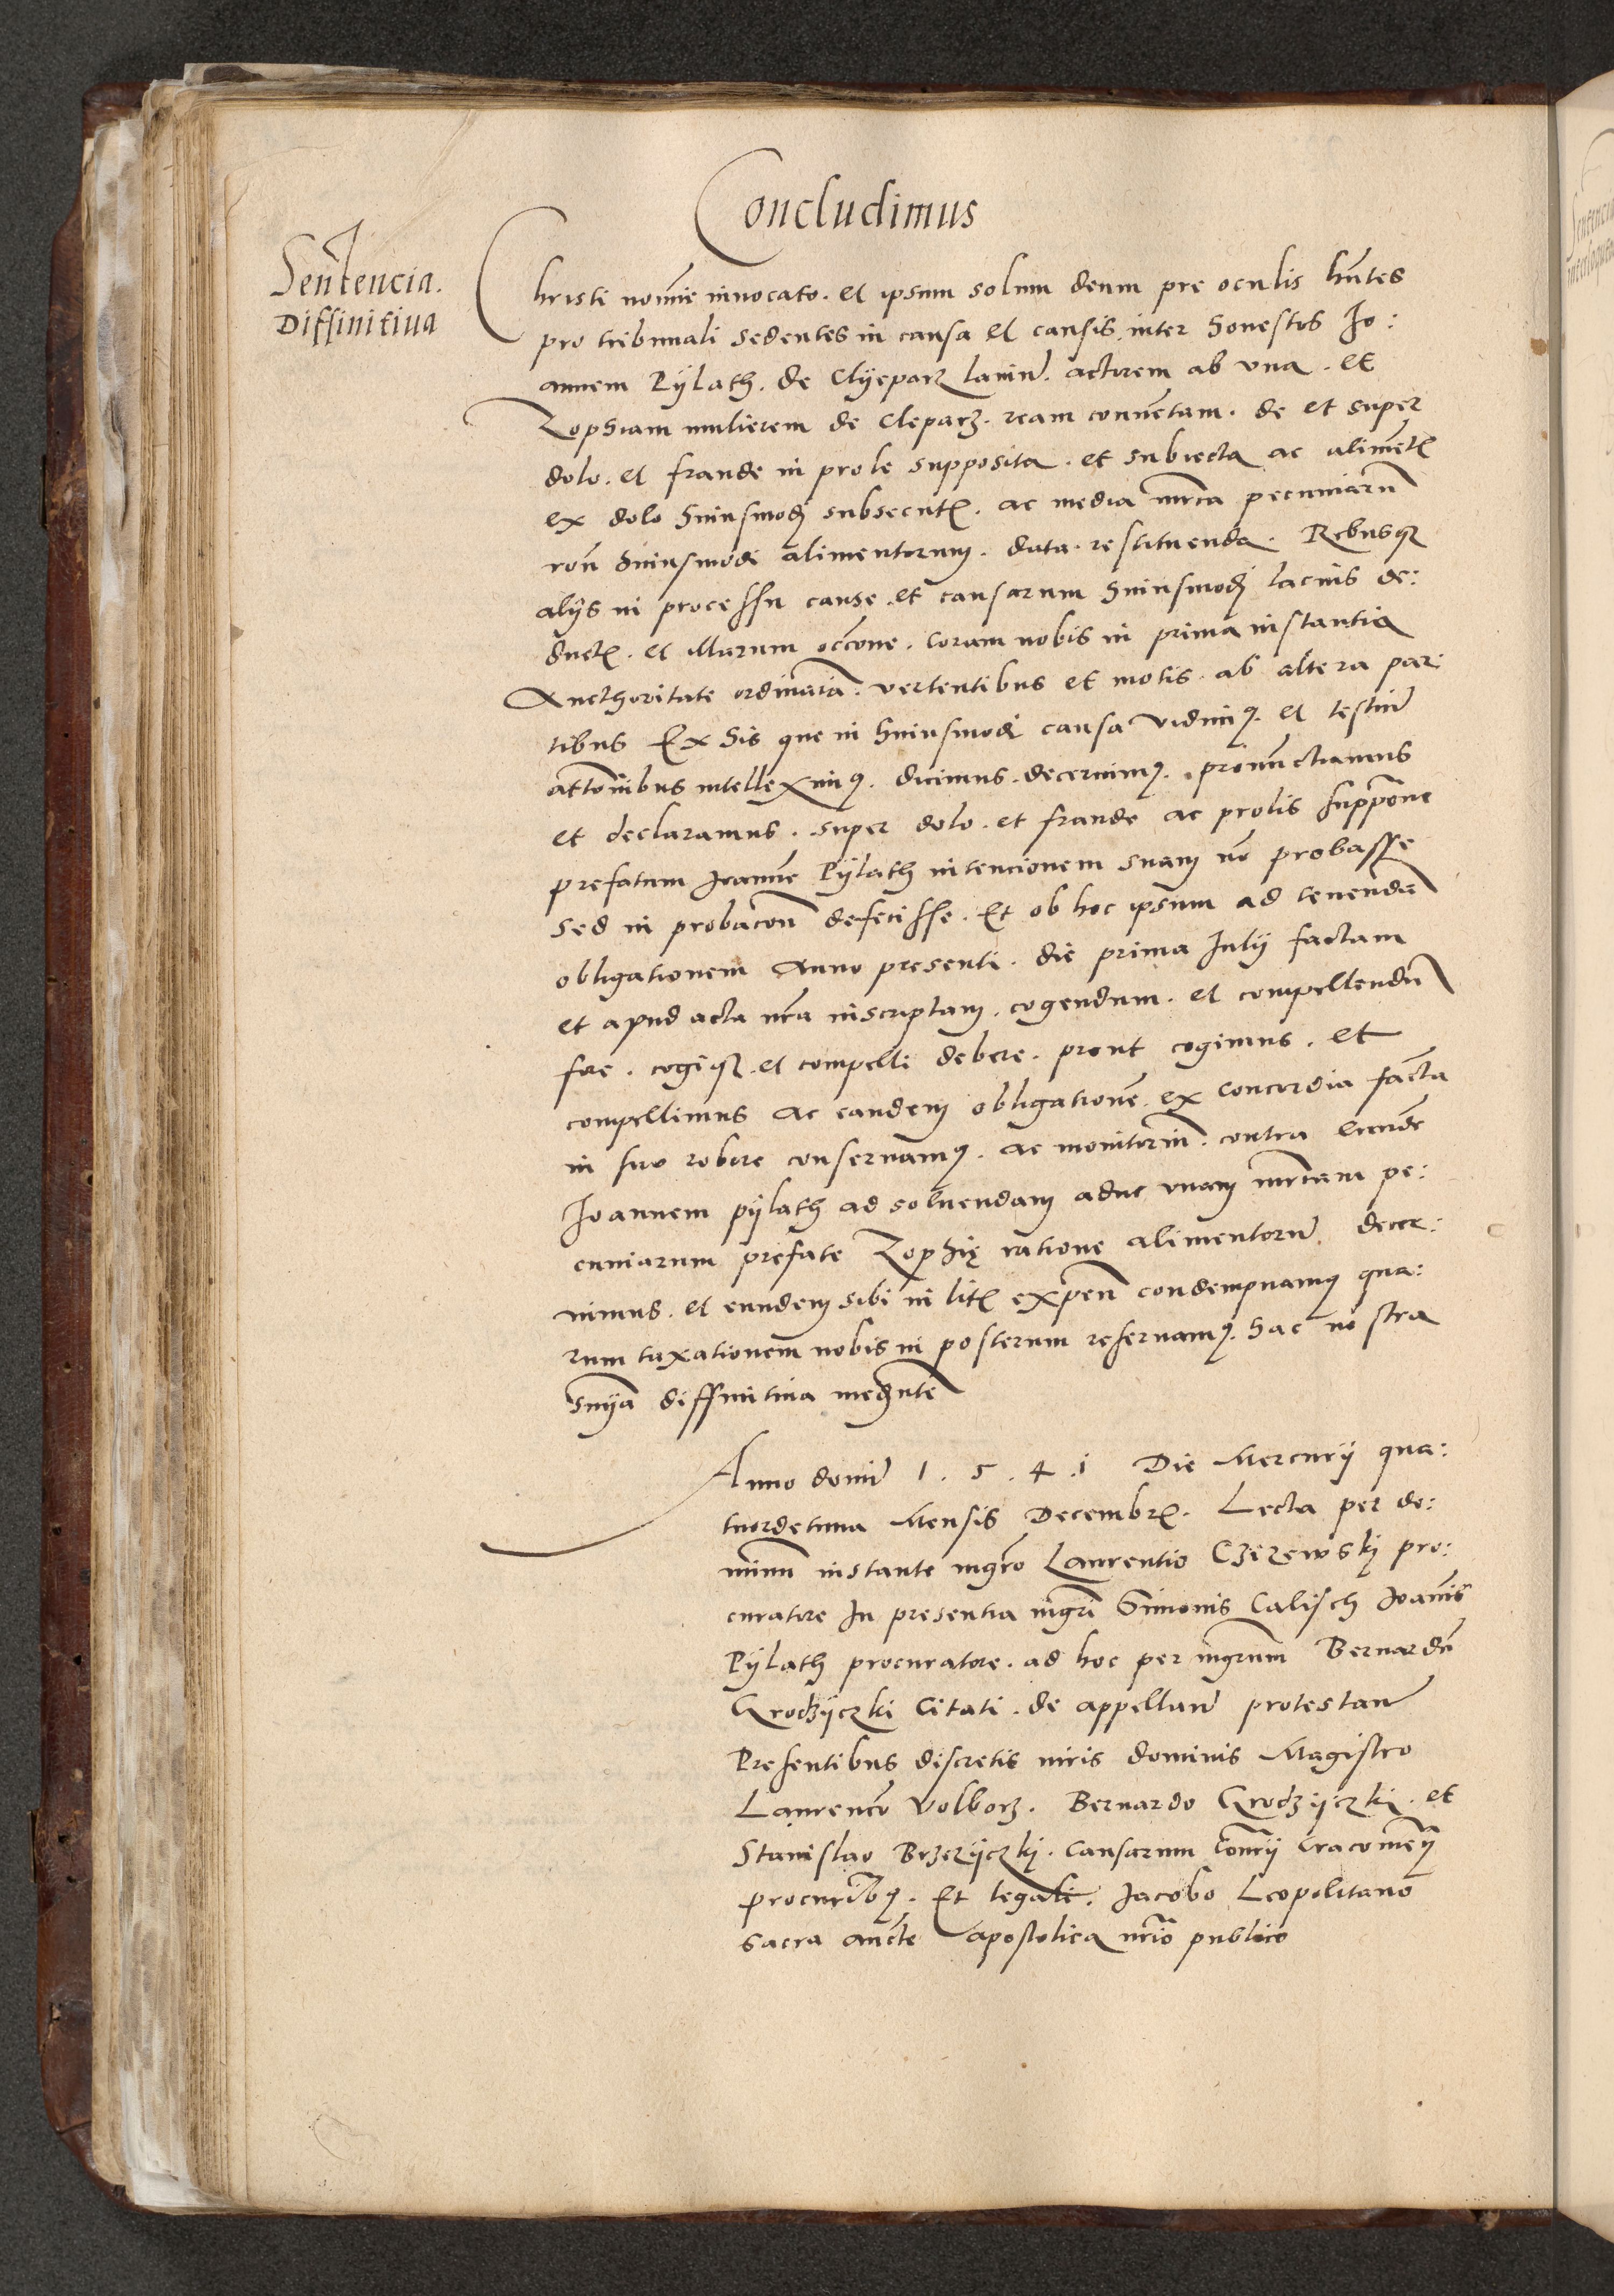 Concludimus
Sentencia.
Diffinitiua
Christi nomine inuocato. et ipsum solum deum pre oculis hntes
pro tribunali sedentes in causa et causis inter honestos Jo:
annem Pÿlath. de Clÿeparz laniu. actorem ab vna. et
Zophiam mulierem de Cleparz. ream conuentam. de et super
dolo. et fraude in prole supposita. et subiecta ac aliment
ex dolo huiusmodj subsecut. ac media mrca pecuniaru
ron huiusmodi alimentorum. data. restituenda. Rebusq
alijs in processu cause. et causarum huiusmodj lacius de:
duct. et illarum occone. coram nobis in prima instantia
Aucthoritate ordinaria. vertentibus et motis. ab altera par:
tibus Ex his que in huiusmodi causa vidimus. et testiu
attonibus intelleximus. dicimus. decernimus. pronunctiamus
et declaramus. super dolo. et fraude ac prolis suppone
prefatum Joanne Pÿlath intencionem suam no probasse
sed in probacon defecisse. Et ob hoc ipsum ad tenenda
obligationem Anno presenti. die prima Julij factam
et apud acta nra inscriptam. cogendum. et compellendu
fore. cogiq. et compelli debere. prout cogimus. et
compellimus ac eandem obligatione ex concordia facta
in suo robore conseruamus. ac monitoriu. contra eunde
Joannem pÿlath ad soluendam aduc vnam mrcam pe:
cuniarum prefate Zophię ratione alimentoru decer:
nimus. et eundem sibi in lit expen condempnamus qua:
rum taxationem nobis in posterum reseruamus. hac nostra
snia diffinitiua mediante
Anno domi 1.5.4.1 Die Mercurij qua:
tuordecima Mensis Decembr. Lecta per do:
minum instante mgro Laurentio Czizewskj pro:
curatore In presentia mgri Simonis Calisch Joannis
Pÿlath procuratore. ad hoc per mgrum Bernardu
Grodzÿczki Citati. de appellan protestan
Presentibus discretis viris dominis Magistro
Laurenco Volborz. Bernardo Grodzÿczki. et
Stanislao Brzezÿczkj. causarum Consrij Cracouien
procuribus. Et legali. Jacobo Leopolitano
sacra aucte apostolica nrio publico